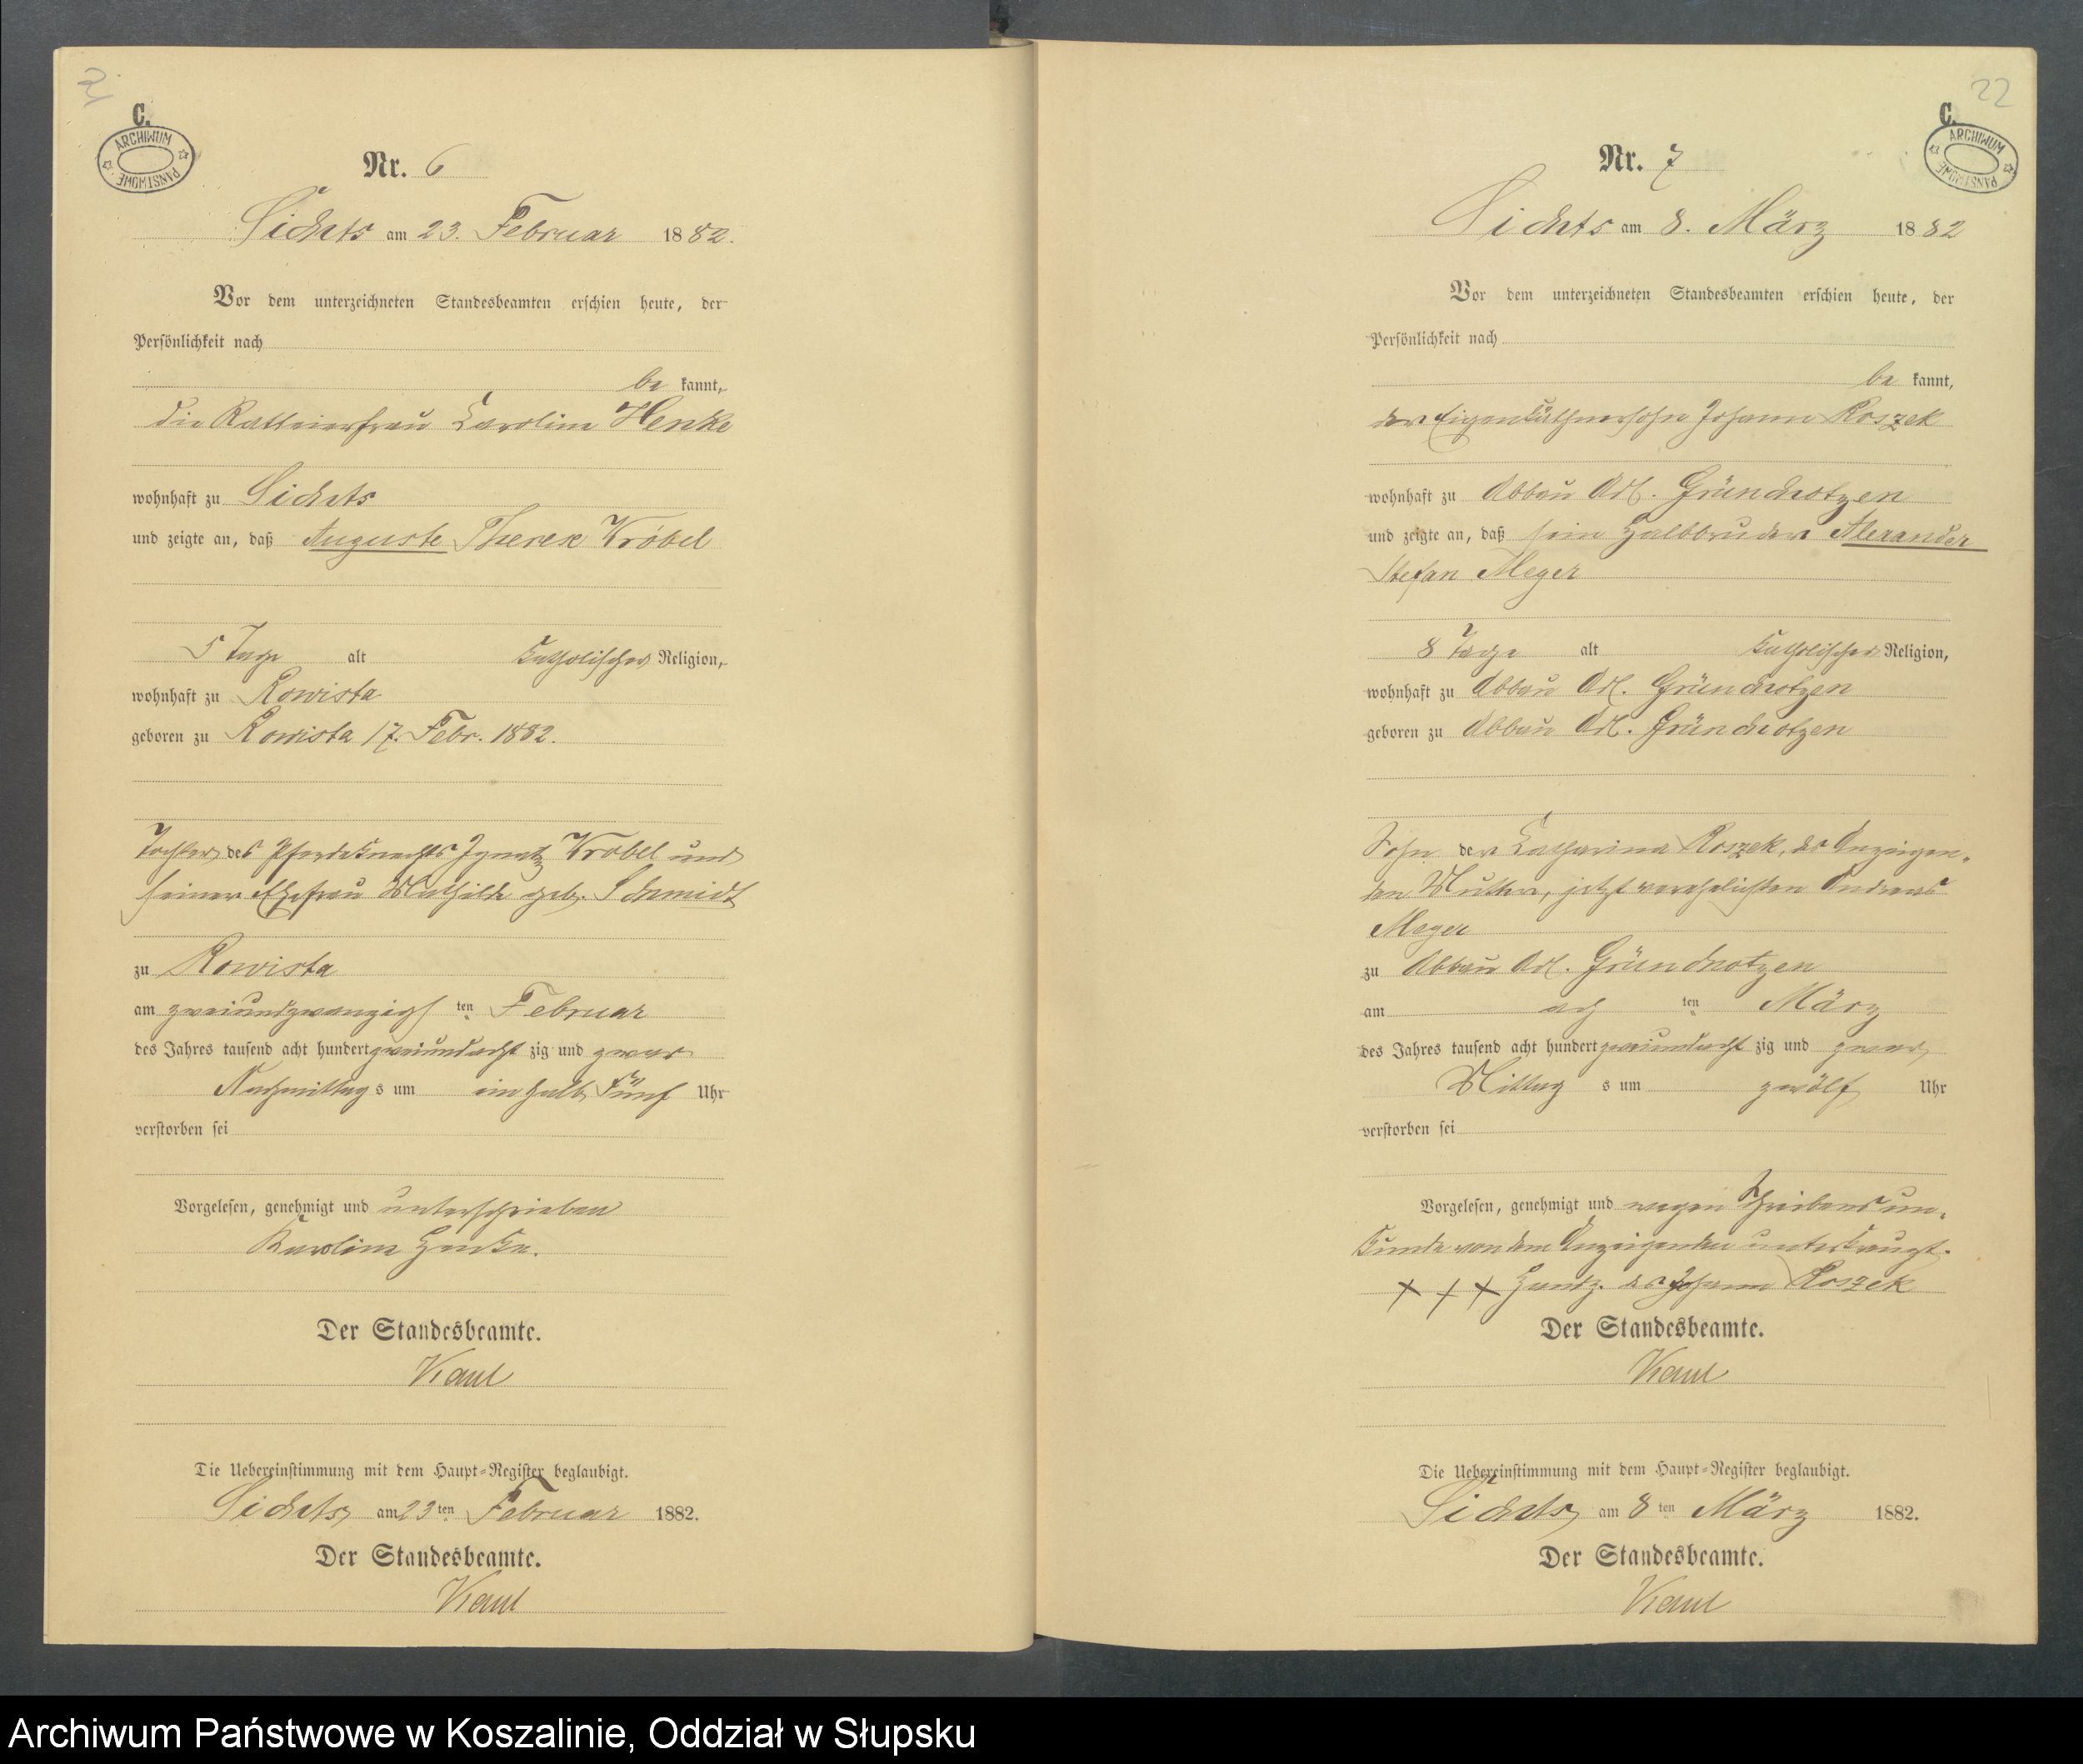 21
C.
ARCHIWUM PAŃSTWOWE
Nr. 6
Lichts am 23. Februar 1882.
Vor dem unterzeichneten Standesbeamten erschien heute, der
Persönlichkeit nach
be kannt,
die Frau Caroline Henke
wohnhaft zu
und zeigte an, daß Auguste Therese Kröbel
5 Tage alt katholischer Religion,
wohnhaft zu Rowista
geboren zu Rowista 17. Febr. 1882.
Tochter des Pferdeknechts Ignatz Krobel und
seiner Ehefrau Mathilde geb. Schmidt
zu Rowista
am zweiundzwanzigs ten Februar
des Jahres tausend acht hundert zweiundacht zig und zwar
Nachmittag s um ein halb fünf Uhr
verstorben sei
Vorgelesen, genehmigt und unterschrieben
Karoline Henke.
Der Standesbeamte.
Kaul
Die Uebereinstimmung mit dem Haupt-Register beglaubigt.
am 23 ten Februar 1882.
Der Standesbeamte.
Kaul
22
C.
ARCHIWUM PAŃSTWOWE
Nr. 7
am 8. März 1882
Vor dem unterzeichneten Standesbeamten erschien heute, der
Persönlichkeit nach
be kannt,
der Eigenkäthnersohn Johann Roszek
wohnhaft zu Abbau Adl. Gründchotzen
und zeigte an, daß sein Halbbruder Alexander
Stefan Meger
8 Tage alt katholischer Religion,
wohnhaft zu Abbau Adl. Gründchotzen
geboren zu Abbau Adl. Gründchotzen
Sohn der Catharina Roszek, des Anzeigen-
den Mutter, jetzt verehelichten Andreas
Meger
zu Abbau Adl. Gründchotzen
am ach ten März
des Jahres tausend acht hundert zweiundacht zig und zwar
Mittag s um zwölf Uhr
verstorben sei
Vorgelesen, genehmigt und wegen Schreibensun-
kunde von dem Anzeigenden unterkreuzt.
+ + + Handz. des Johann Roszek
Der Standesbeamte.
Kaul
Die Uebereinstimmung mit dem Haupt-Register beglaubigt.
am 8 ten März 1882.
Der Standesbeamte.
Kaul
Archiwum Państwowe w Koszalinie, Oddział w Słupsku